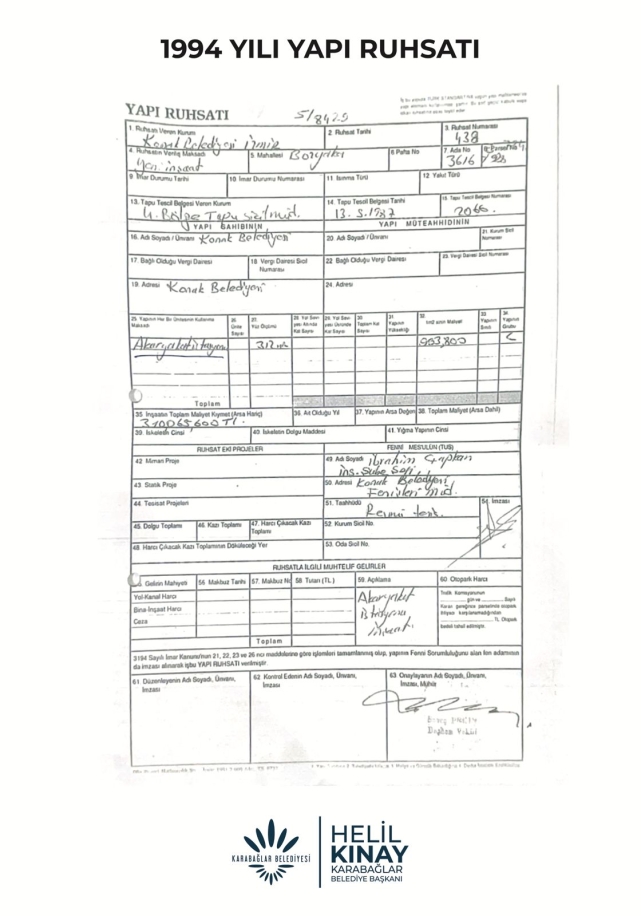 1994 YILI YAPI RUHSATI
YAPI RUHSATI
5/8429
1. Ruhsatı Veren Kurum
Konak Belediyesi İzmir
2 Ruhsat Tarihi
3. Ruhsat Numarası
438
4. Ruhsatın Veriliş Maksadı
Yeni inşaat
5. Mahallesi Bozyaka
6 Pafta No
7. Ada No
3616
8. Parsel No
9. İmar Durumu Tarihi
10. İmar Durumu Numarası
11. Isınma Türü
12. Yakıt Türü
13. Tapu Tescil Belgesi Veren Kurum
4. Bölge Tapu Sicil Müd.
14. Tapu Tescil Belgesi Tarihi
13.5.1987
15. Tapu Tescil Belgesi Numarası
2066.
YAPI SAHİBİNİN
YAPI MÜTEAHHİDİNİN
16. Adı Soyadı / Ünvanı Konak Belediyesi
20. Adı Soyadı / Ünvanı
21. Kurum Sicil Numarası
17. Bağlı Olduğu Vergi Dairesi
18. Vergi Dairesi Sicil Numarası
22. Bağlı Olduğu Vergi Dairesi
23. Vergi Dairesi Sicil Numarası
19. Adresi Konak Belediyesi
24. Adresi
25. Yapının Her Bir Ünitesinin Kullanma Maksadı
26. Ünite Sayısı
27. Yüz Ölçümü
28. Yol Seviyesi Altında Kat Sayısı
29. Yol Seviyesi Üstünde Kat Sayısı
30. Toplam Kat Sayısı
31. Yapının Yüksekliği
32. 1m2 sinin Maliyeti
33. Yapının Sınıfı
34. Yapının Grubu
Akaryakıt İstasyonu
312 m²
903,800
C
Toplam
35. İnşaatın Toplam Maliyet Kıymet (Arsa Hariç)
36. Ait Olduğu Yıl
37. Yapının Arsa Değeri
38. Toplam Maliyet (Arsa Dahil)
39. İskeletin Cinsi
40. İskeletin Dolgu Maddesi
41. Yığma Yapının Cinsi
RUHSAT EKİ PROJELER
FENNİ MESULÜN (TUS)
42. Mimari Proje
49. Adı Soyadı İbrahim Çaptan
İnş. Şube Şefi
43. Statik Proje
50. Adresi Konak Belediyesi
Fen işleri Müd.
44. Tesisat Projeleri
51. Taahhüdü
54. İmzası
45. Dolgu Toplamı
46. Kazı Toplamı
47. Harcı Çıkacak Kazı Toplamı
52. Kurum Sicil No.
48. Harcı Çıkacak Kazı Toplamının Döküleceği Yer
53. Oda Sicil No.
RUHSATLA İLGİLİ MUHTELİF GELİRLER
Gelirin Mahiyeti
56 Makbuz Tarihi
57. Makbuz No
58. Tutarı (TL.)
59. Açıklama
60. Otopark Harcı
Yol-Kanal Harcı
Bina-İnşaat Harcı
Ceza
Akaryakıt
İstasyonu
İnşaatı
Toplam
3194 Sayılı İmar Kanunu'nun 21, 22, 23 ve 26 ncı maddelerine göre işlemleri tamamlanmış olup, yapının Fenni Sorumluluğunu alan fen adamının
da imzası alınarak işbu YAPI RUHSATI verilmiştir.
61. Düzenleyenin Adı Soyadı, Ünvanı, İmzası
62. Kontrol Edenin Adı Soyadı, Ünvanı, İmzası
63 Onaylayanın Adı Soyadı, Ünvanı, İmzası, Mühür
Başkan Vekili
KARABAĞLAR BELEDİYESİ
HELİL
KINAY
KARABAĞLAR
BELEDİYE BAŞKANI